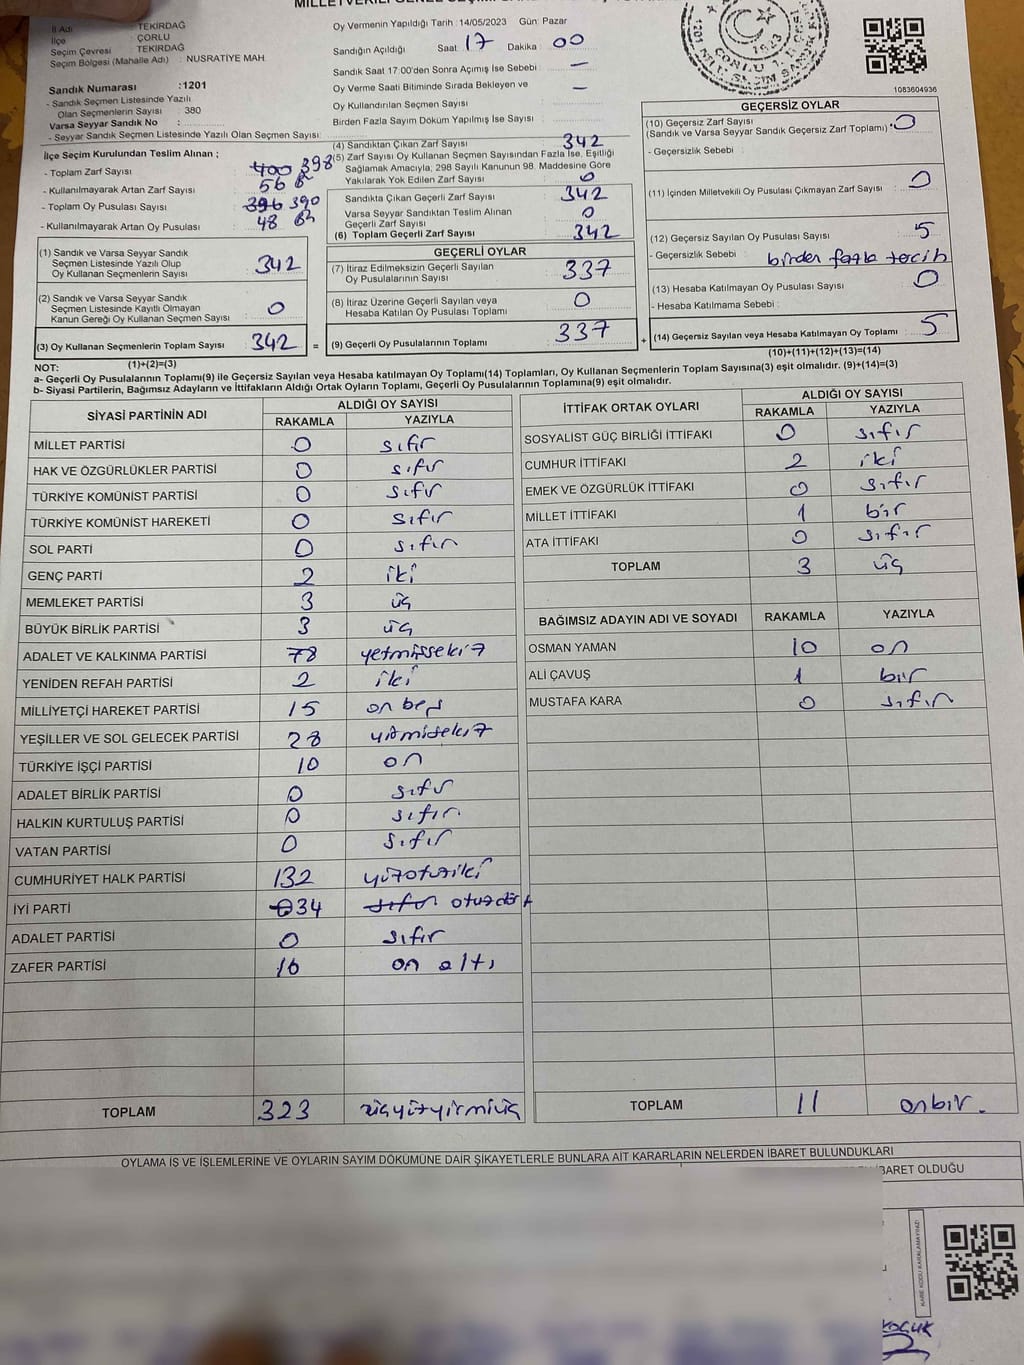 İl Adı : TEKİRDAĞ
İlçe : ÇORLU
Seçim Çevresi : TEKİRDAĞ
Seçim Bölgesi (Mahalle Adı) : NUSRATİYE MAH.
Sandık Numarası :1201
- Sandık Seçmen Listesinde Yazılı
Olan Seçmenlerin Sayısı : 380
Varsa Seyyar Sandık No :
- Seyyar Sandık Seçmen Listesinde Yazılı Olan Seçmen Sayısı :
Oy Vermenin Yapıldığı Tarih :14/05/2023 Gün: Pazar
Sandığın Açıldığı Saat 17 Dakika 00
Sandık Saat 17:00'den Sonra Açımış İse Sebebi : —
Oy Verme Saati Bitiminde Sırada Bekleyen ve —
Oy Kullandırılan Seçmen Sayısı
Birden Fazla Sayım Döküm Yapılmış İse Sayısı :
1083604936
İlçe Seçim Kurulundan Teslim Alınan ;
- Toplam Zarf Sayısı : 400 398
- Kullanılmayarak Artan Zarf Sayısı 56
- Toplam Oy Pusulası Sayısı : 396 390
- Kullanılmayarak Artan Oy Pusulası 48
(4) Sandıktan Çıkan Zarf Sayısı 342
(5) Zarf Sayısı Oy Kullanan Seçmen Sayısından Fazla İse, Eşitliği
Sağlamak Amacıyla, 298 Sayılı Kanunun 98. Maddesine Göre
Yakılarak Yok Edilen Zarf Sayısı 0
Sandıkta Çıkan Geçerli Zarf Sayısı 342
Varsa Seyyar Sandıktan Teslim Alınan
Geçerli Zarf Sayısı 0
(6) Toplam Geçerli Zarf Sayısı 342
(1) Sandık ve Varsa Seyyar Sandık
Seçmen Listesinde Yazılı Olup
Oy Kullanan Seçmenlerin Sayısı 342
(2) Sandık ve Varsa Seyyar Sandık
Seçmen Listesinde Kayıtlı Olmayan
Kanun Gereği Oy Kullanan Seçmen Sayısı 0
(3) Oy Kullanan Seçmenlerin Toplam Sayısı 342 =
GEÇERLİ OYLAR
(7) İtiraz Edilmeksizin Geçerli Sayılan
Oy Pusulalarının Sayısı 337
(8) İtiraz Üzerine Geçerli Sayılan veya
Hesaba Katılan Oy Pusulası Toplamı 0
(9) Geçerli Oy Pusulalarının Toplamı 337 +
GEÇERSİZ OYLAR
(10) Geçersiz Zarf Sayısı
(Sandık ve Varsa Seyyar Sandık Geçersiz Zarf Toplamı) 0
- Geçersizlik Sebebi :
(11) İçinden Milletvekili Oy Pusulası Çıkmayan Zarf Sayısı 0
(12) Geçersiz Sayılan Oy Pusulası Sayısı 5
- Geçersizlik Sebebi : birden fazla tercih
(13) Hesaba Katılmayan Oy Pusulası Sayısı 0
- Hesaba Katılmama Sebebi :
(14) Geçersiz Sayılan veya Hesaba Katılmayan Oy Toplamı 5
NOT: (1)+(2)=(3) (10)+(11)+(12)+(13)=(14)
a- Geçerli Oy Pusulalarının Toplamı(9) ile Geçersiz Sayılan veya Hesaba katılmayan Oy Toplamı(14) Toplamları, Oy Kullanan Seçmenlerin Toplam Sayısına(3) eşit olmalıdır. (9)+(14)=(3)
b- Siyasi Partilerin, Bağımsız Adayların ve İttifakların Aldığı Ortak Oyların Toplamı, Geçerli Oy Pusulalarının Toplamına(9) eşit olmalıdır.
SİYASİ PARTİNİN ADI ALDIĞI OY SAYISI
RAKAMLA YAZIYLA
MİLLET PARTİSİ 0 sıfır
HAK VE ÖZGÜRLÜKLER PARTİSİ 0 sıfır
TÜRKİYE KOMÜNİST PARTİSİ 0 sıfır
TÜRKİYE KOMÜNİST HAREKETİ 0 sıfır
SOL PARTİ 0 sıfır
GENÇ PARTİ 2 iki
MEMLEKET PARTİSİ 3 üç
BÜYÜK BİRLİK PARTİSİ 3 üç
ADALET VE KALKINMA PARTİSİ 78 yetmişsekiz
YENİDEN REFAH PARTİSİ 2 iki
MİLLİYETÇİ HAREKET PARTİSİ 15 on beş
YEŞİLLER VE SOL GELECEK PARTİSİ 28 yirmisekiz
TÜRKİYE İŞÇİ PARTİSİ 10 on
ADALET BİRLİK PARTİSİ 0 sıfır
HALKIN KURTULUŞ PARTİSİ 0 sıfır.
VATAN PARTİSİ 0 sıfır
CUMHURİYET HALK PARTİSİ 132 yüzotuziki
İYİ PARTİ 0 34 sıfır otuzdört
ADALET PARTİSİ 0 sıfır
ZAFER PARTİSİ 16 on altı
TOPLAM 323 üçyüzyirmiüç
İTTİFAK ORTAK OYLARI ALDIĞI OY SAYISI
RAKAMLA YAZIYLA
SOSYALİST GÜÇ BİRLİĞİ İTTİFAKI 0 sıfır
CUMHUR İTTİFAKI 2 iki
EMEK VE ÖZGÜRLÜK İTTİFAKI 0 sıfır
MİLLET İTTİFAKI 1 bir
ATA İTTİFAKI 0 sıfır
TOPLAM 3 üç
BAĞIMSIZ ADAYIN ADI VE SOYADI RAKAMLA YAZIYLA
OSMAN YAMAN 10 on
ALİ ÇAVUŞ 1 bir
MUSTAFA KARA 0 sıfır
TOPLAM 11 onbir.
OYLAMA İŞ VE İŞLEMLERİNE VE OYLARIN SAYIM DÖKÜMÜNE DAİR ŞİKAYETLERLE BUNLARA AİT KARARLARIN NELERDEN İBARET BULUNDUKLARI
İBARET OLDUĞU
KARE KODU KARALAMAYINIZ!